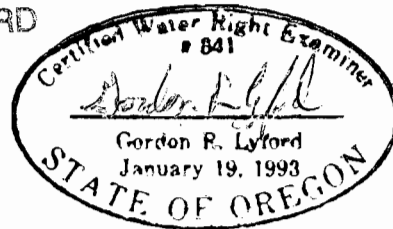 RD
Certified Water Right Examiner
# 841
Gordon R. Lyford
Gordon R. Lyford
January 19, 1993
STATE OF OREGON